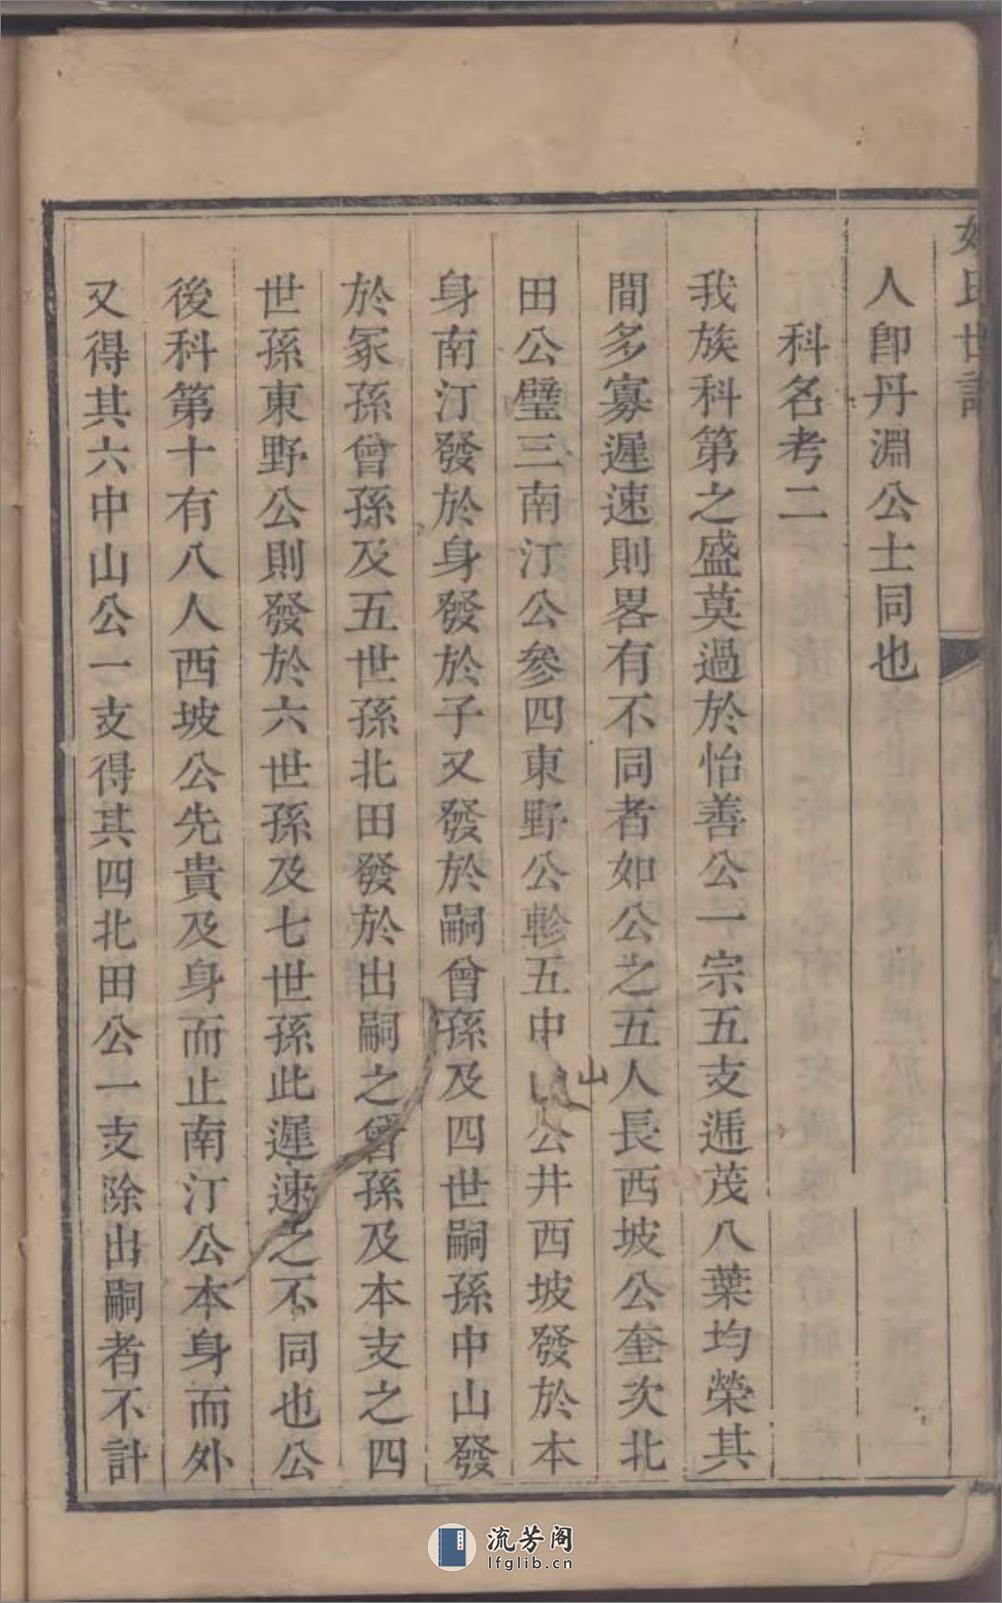 人卽丹淵公士同也
科名考二
我族科第之盛莫過於怡善公一宗五支遞茂八葉均榮其
間多寡遲速則畧有不同者如公之五人長西坡公奎次北
田公璧三南汀公參四東野公軫五中山公井西坡發於本
身南汀發於身發於子又發於嗣曾孫及四世嗣孫中山發
於冢孫曾孫及五世孫北田發於出嗣之曾孫及本支之四
世孫東野公則發於六世孫及七世孫此遲速之不同也公
後科第十有八人西坡公先貴及身而止南汀公本身而外
又得其六中山公一支得其四北田公一支除出嗣者不計
流芳阁
lfglib.cn